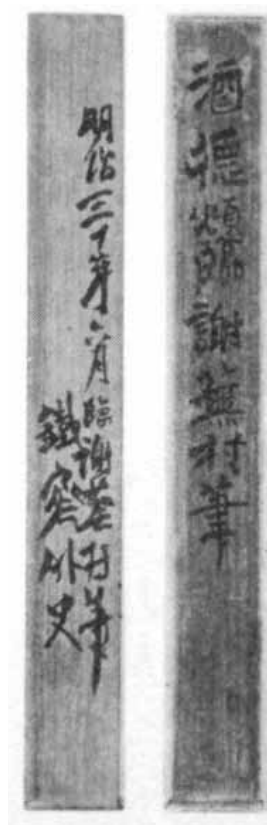 酒徳頌謝蕪村筆
明治三十年六月臨謝蕪村筆
鐵齋外史